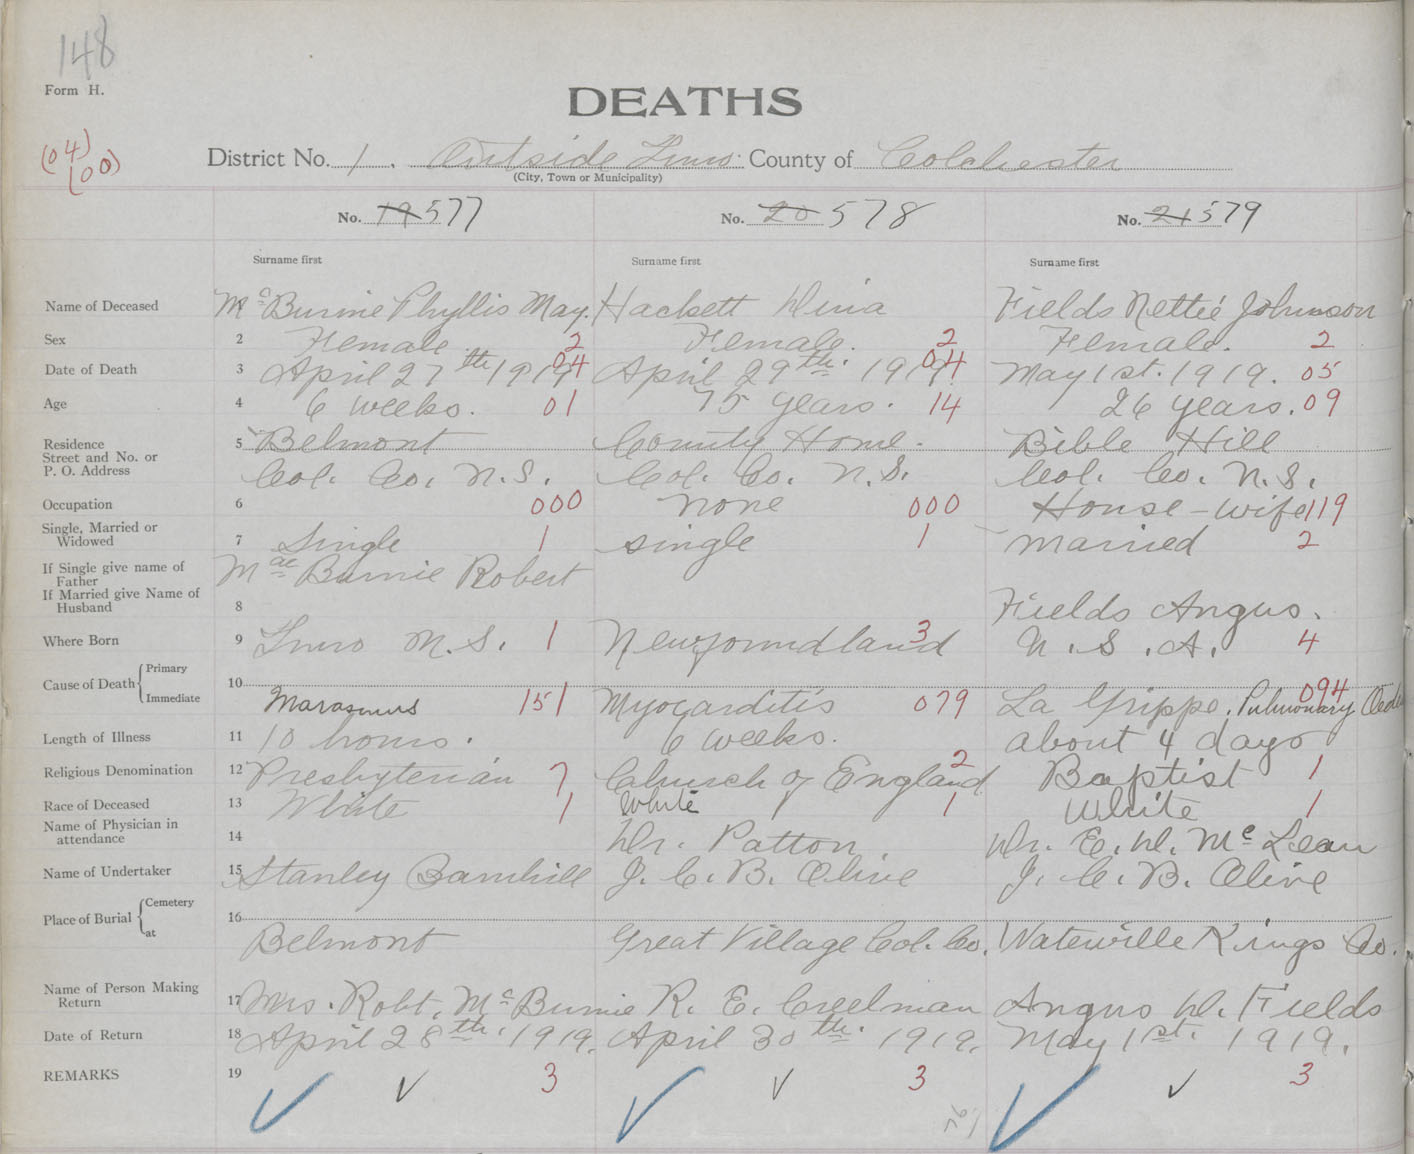 148
Form H.
DEATHS
(04)
(00)
District No. 1. Outside Truro. County of Colchester
(City, Town or Municipality)
No. 19 577 No. 20 578 No. 21 579
Surname first Surname first Surname first
Name of Deceased 1 McBurnie Phyllis May. Hackett Dina Fields Nettie Johnson
Sex 2 Female. 2 Female. 2 Female. 2
Date of Death 3 April 27th 1919 04 April 29th. 1919. 04 May 1st. 1919. 05
Age 4 6 weeks. 01 75 years. 14 26 years. 09
Residence 5 Belmont County Home. Bible Hill
Street and No. or
P. O. Address Col. Co. N.S. Col. Co. N.S. Col. Co. N.S.
Occupation 6 000 none 000 House-wife 119
Single, Married or
Widowed 7 Single 1 single 1 married 2
If Single give name of
Father MacBurnie Robert
If Married give Name of
Husband 8 Fields Angus.
Where Born 9 Truro N.S. 1 Newfoundland 3 U.S.A. 4
Cause of Death { Primary 10
Immediate Marasmus 151 Myocarditis 079 La Grippe, Pulmonary 094
Length of Illness 11 10 hours. 6 weeks. about 4 days
Religious Denomination 12 Presbyterian 7 Church of England 2 Baptist 1
Race of Deceased 13 White 1 White 1 White 1
Name of Physician in
attendance 14 Dr. Patton. Dr. E. D. McLean
Name of Undertaker 15 Stanley Barnhill J. C. B. Olive J. C. B. Olive
Place of Burial { Cemetery 16
at Belmont Great Village Col. Co. Waterville Kings Co.
Name of Person Making
Return 17 Mrs. Robt. McBurnie R. E. Creelman Angus D. Fields
Date of Return 18 April 28th. 1919. April 30th. 1919. May 1st. 1919.
REMARKS 19 3 3 3